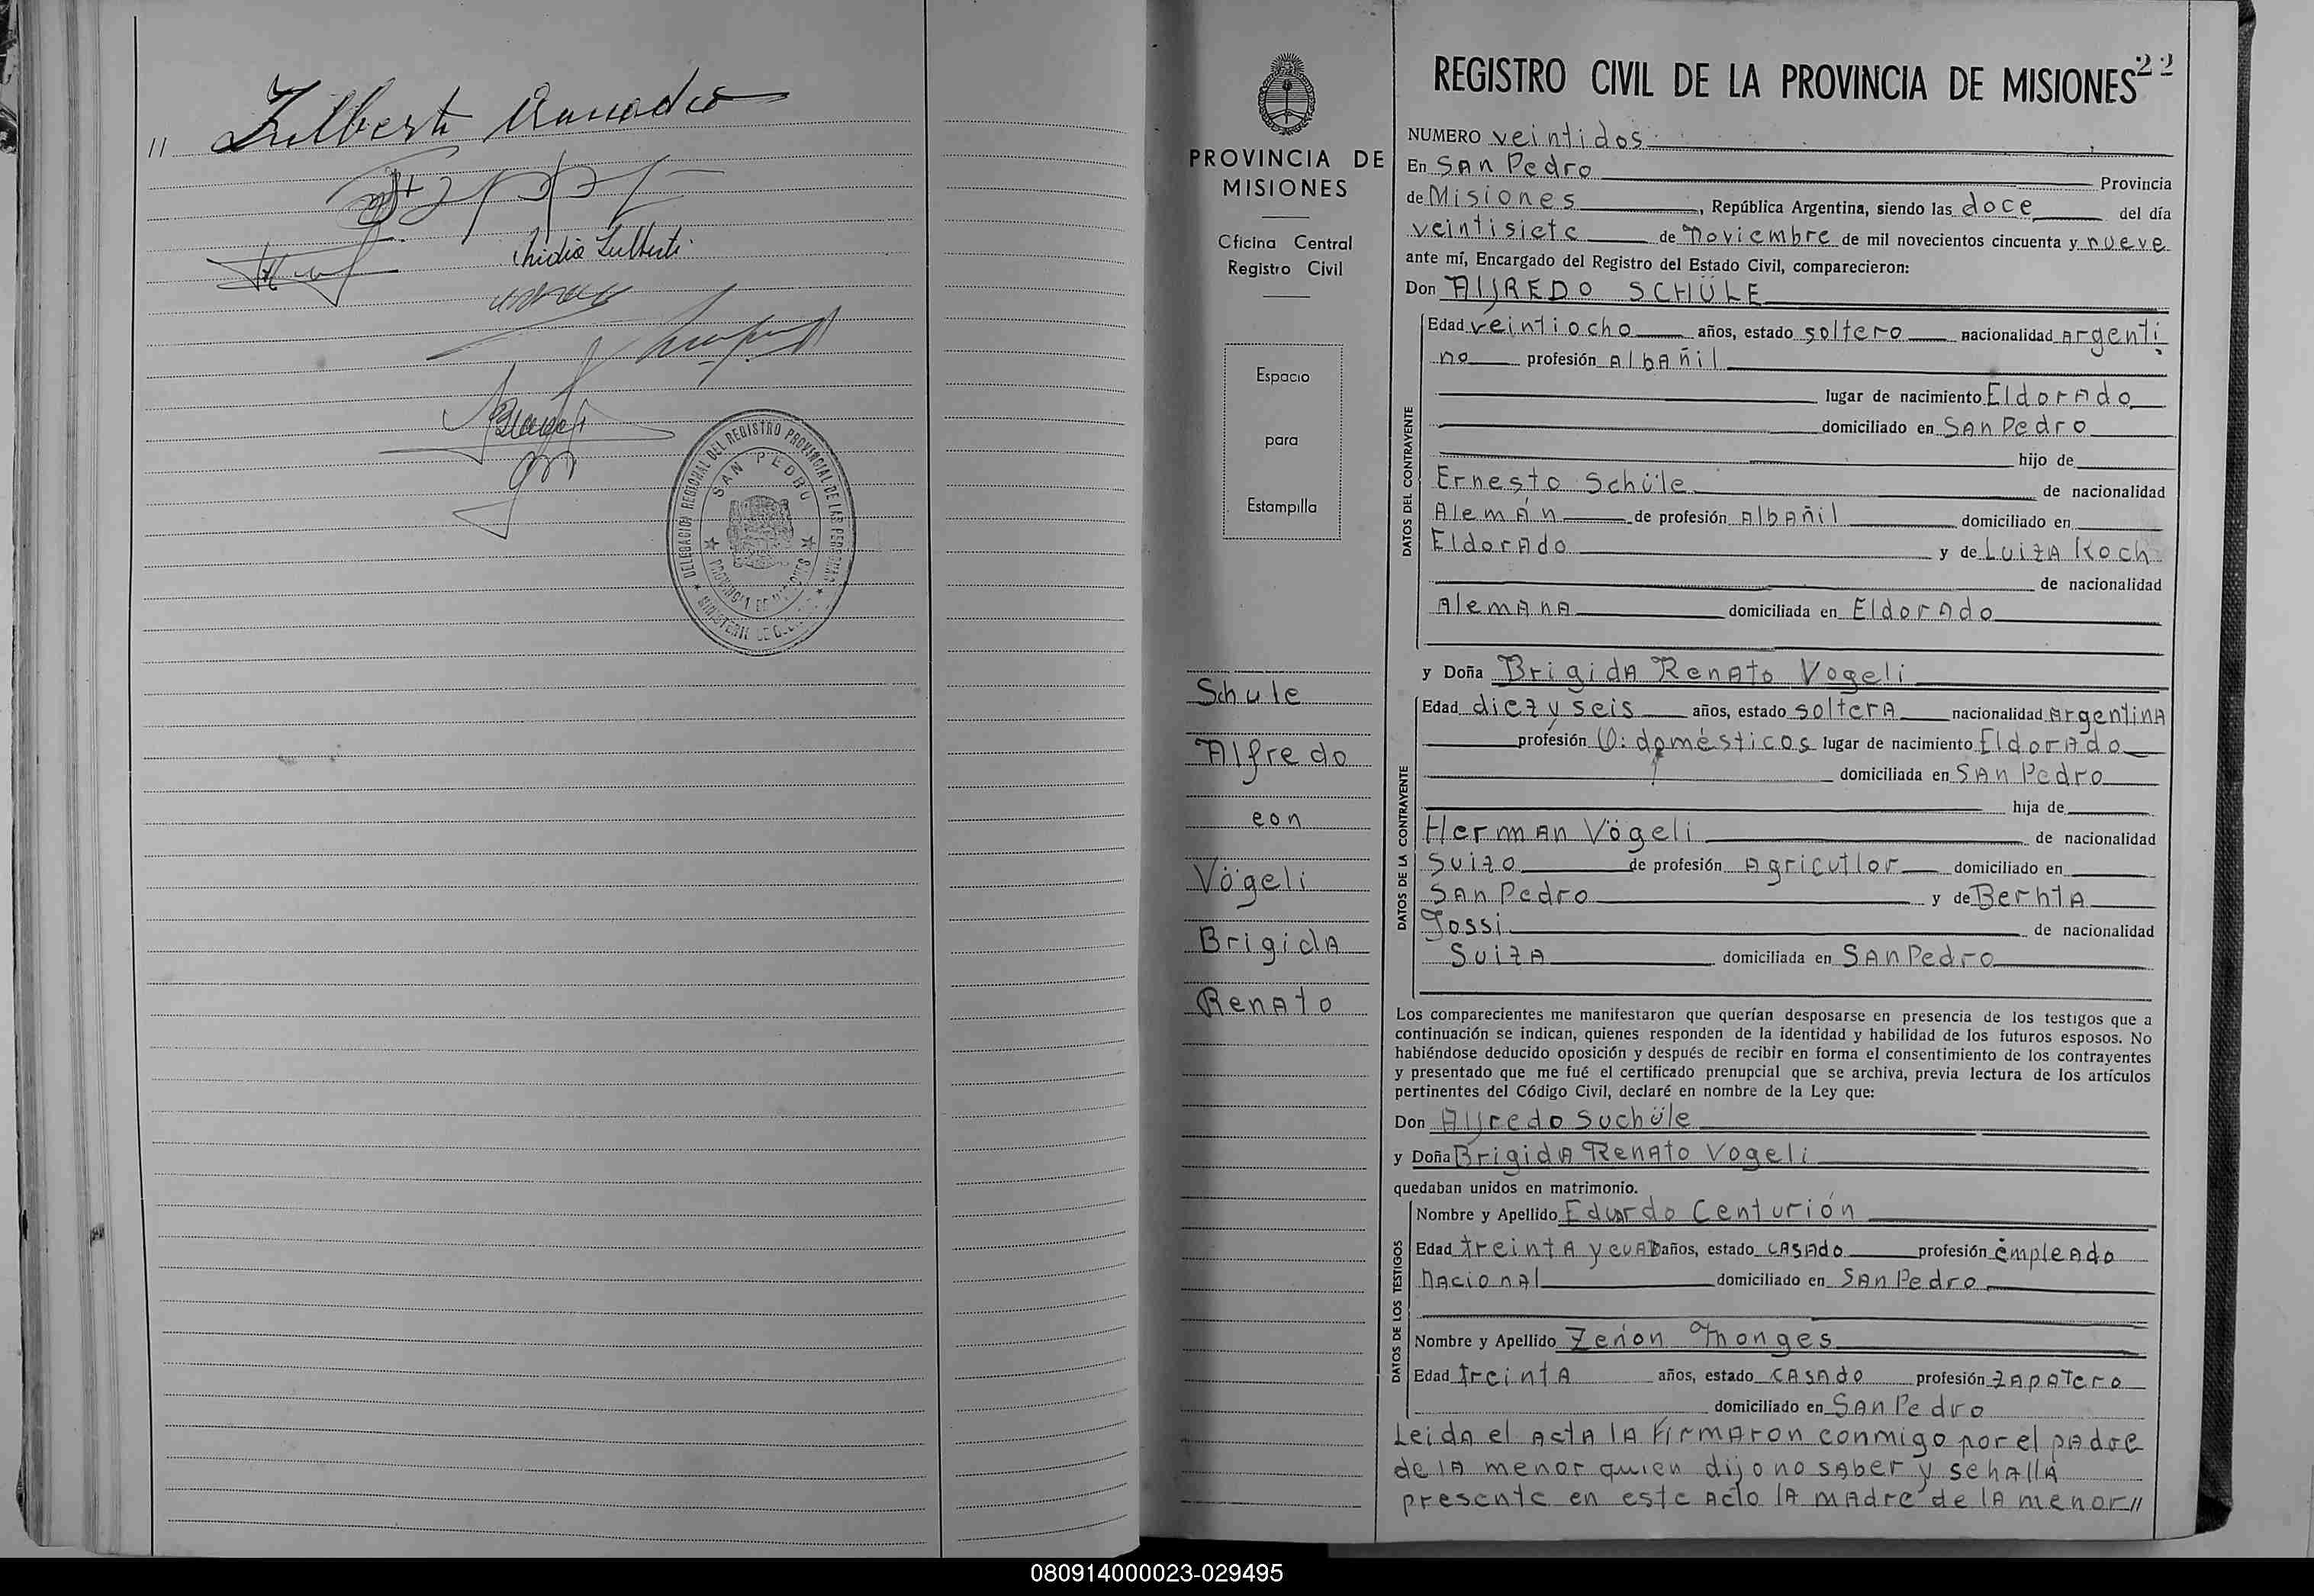 // Lulberti Amadeo
Lulberti
DELEGACION REGIONAL DEL REGISTRO PROVINCIAL DE LAS PERSONAS
SAN PEDRO
PROVINCIA DE MISIONES
PROVINCIA DE
MISIONES
Oficina Central
Registro Civil
Espacio
para
Estampilla
Schule
Alfredo
con
Vögeli
Brigida
Renato
REGISTRO CIVIL DE LA PROVINCIA DE MISIONES 22
NUMERO veintidos
En San Pedro Provincia
de Misiones, República Argentina, siendo las doce del día
veintisiete de noviembre de mil novecientos cincuenta y nueve
ante mí, Encargado del Registro del Estado Civil, comparecieron:
Don AlfREDO SCHÜLE
DATOS DEL CONTRAYENTE
Edad veintiocho años, estado soltero nacionalidad Argenti
no profesión Albañil
lugar de nacimiento Eldorado
domiciliado en San Pedro
hijo de
Ernesto Schüle de nacionalidad
Alemán de profesión Albañil domiciliado en
Eldorado y de Luiza Koch
de nacionalidad
Alemana domiciliada en Eldorado
y Doña Brigida Renato Vogeli
DATOS DE LA CONTRAYENTE
Edad diez y seis años, estado soltera nacionalidad Argentina
profesión Q: domésticos lugar de nacimiento Eldorado
domiciliada en San Pedro
hija de
Herman Vögeli de nacionalidad
Suizo de profesión Agricutlor domiciliado en
San Pedro y de Berhta
Tossi de nacionalidad
Suiza domiciliada en San Pedro
Los comparecientes me manifestaron que querían desposarse en presencia de los testigos que a
continuación se indican, quienes responden de la identidad y habilidad de los futuros esposos. No
habiéndose deducido oposición y después de recibir en forma el consentimiento de los contrayentes
y presentado que me fué el certificado prenupcial que se archiva, previa lectura de los artículos
pertinentes del Código Civil, declaré en nombre de la Ley que:
Don Alfredo Suchüle
y Doña Brigida Renato Vogeli
quedaban unidos en matrimonio.
DATOS DE LOS TESTIGOS
Nombre y Apellido Eduardo Centurión
Edad treinta y cuatro años, estado casado profesión empleado
nacional domiciliado en San Pedro
Nombre y Apellido Zenon Monges
Edad treinta años, estado casado profesión zapatero
domiciliado en San Pedro
Leida el acta la firmaron conmigo por el padre
de la menor quien dijo no saber y se halla
presente en este acto la madre de la menor //
080914000023-029495